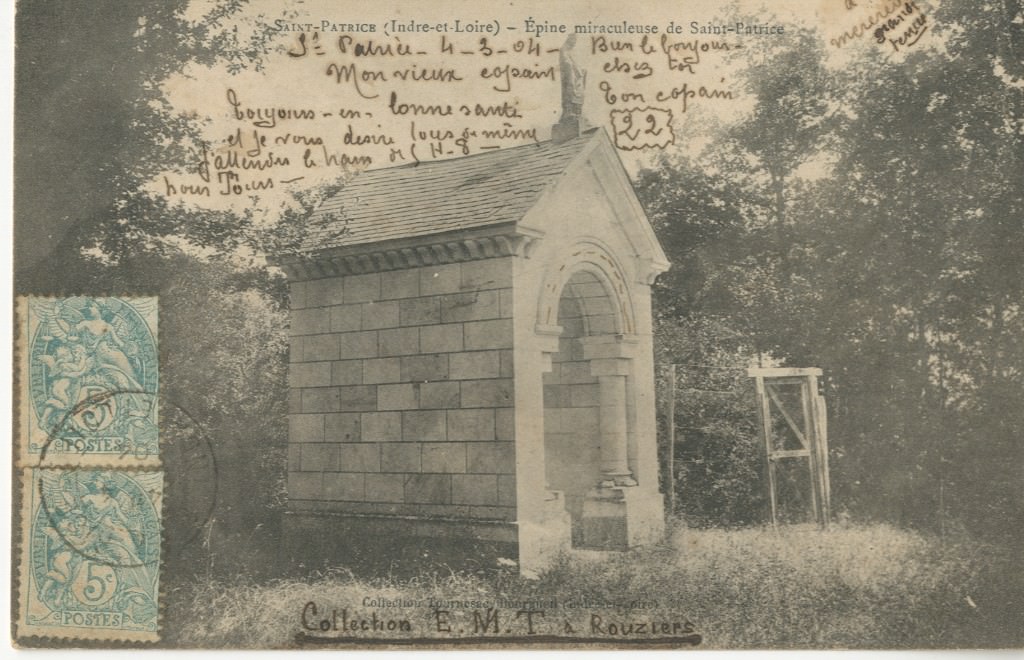 SAINT-PATRICE (Indre-et-Loire) – Épine miraculeuse de Saint-Patrice
St Patrice - 4-3-04 -
Mon vieux copain
Toujours - en - bonne santé
et je vous desire tous de même
J'attendes le train de 5 H-8
pour Tours —
Bien le bonjour -
chez toi
Ton copain
22
à
grande
POSTES
5c
POSTES
Collection Tournesac, Bourgueil (Indre-et-Loire)
Collection E. M. T à Rouziers